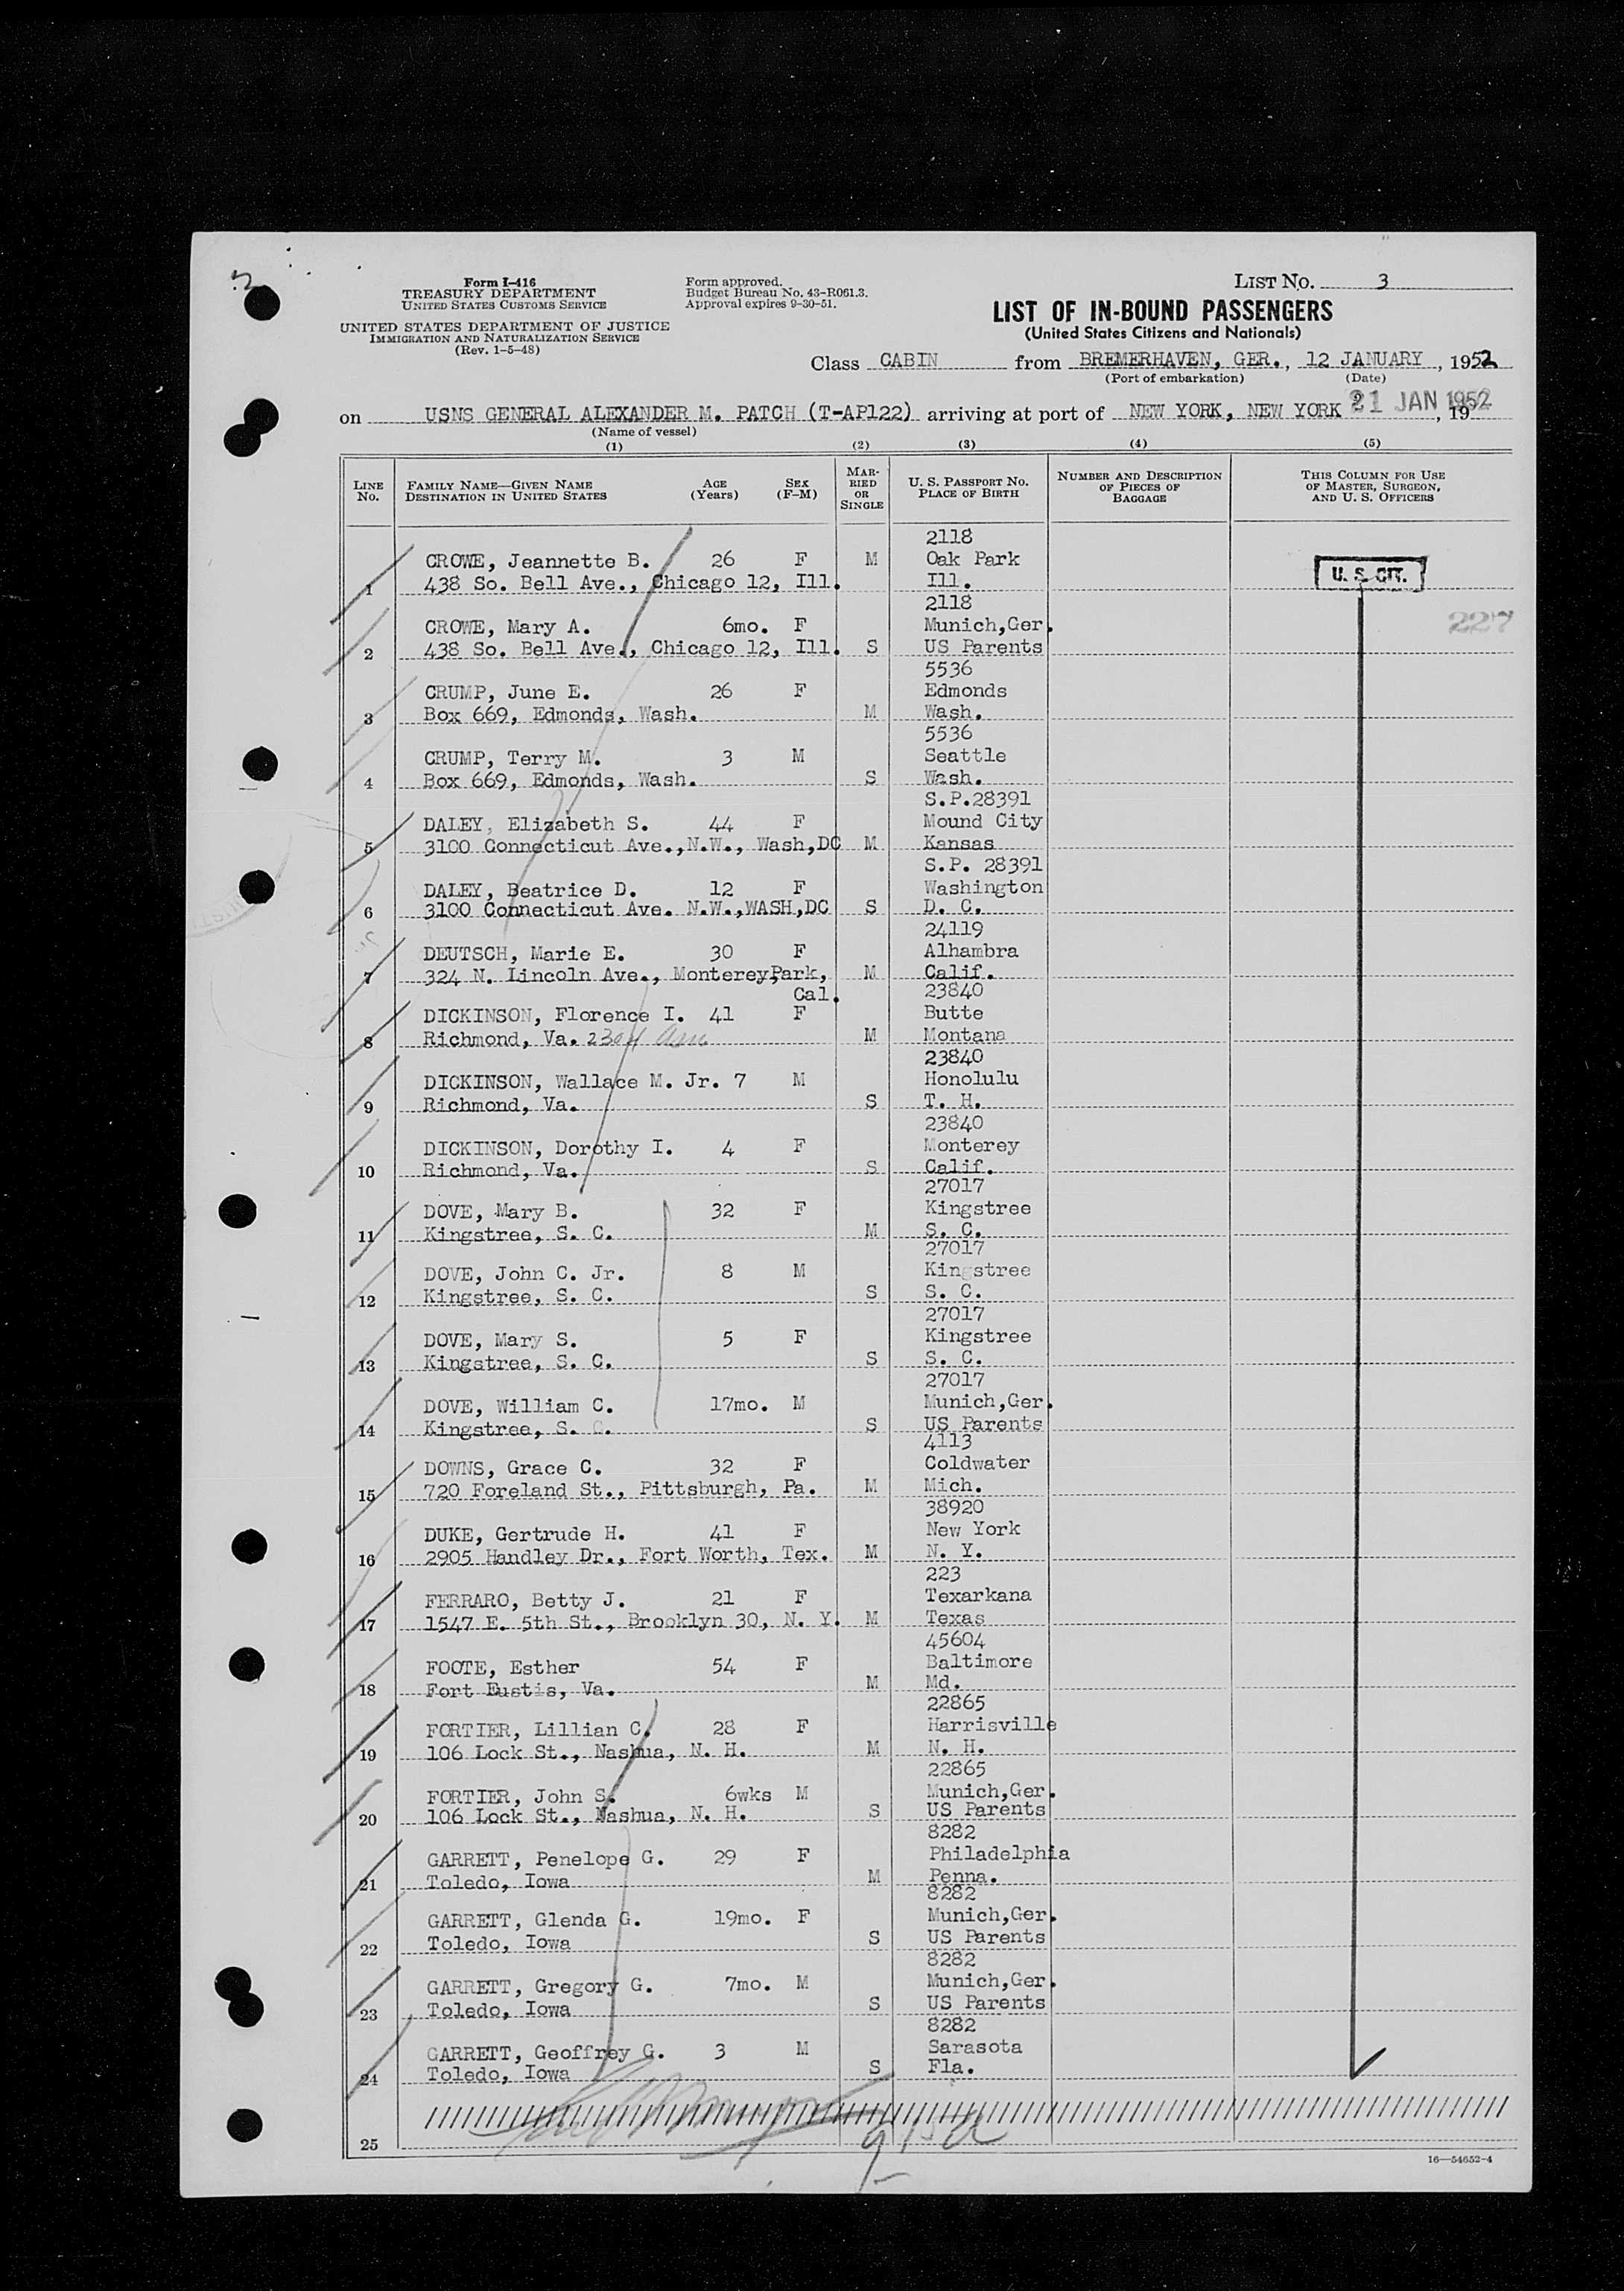 Form I-416
TREASURY DEPARTMENT
UNITED STATES CUSTOMS SERVICE
UNITED STATES DEPARTMENT OF JUSTICE
IMMIGRATION AND NATURALIZATION SERVICE
(Rev. 1-5-48)
Form approved.
Budget Bureau No. 43-R061.3.
Approval expires 9-30-51.
LIST No. 3
LIST OF IN-BOUND PASSENGERS
(United States Citizens and Nationals)
Class CABIN from BREMERHAVEN, GER., 12 JANUARY, 1952
(Port of embarkation) (Date)
on USNS GENERAL ALEXANDER M. PATCH (T-AP122) arriving at port of NEW YORK, NEW YORK 21 JAN 1952, 19
(Name of vessel)
(1) (2) (3) (4) (5)
LINE No. FAMILY NAME—GIVEN NAME DESTINATION IN UNITED STATES AGE (Years) SEX (F-M) MARRIED OR SINGLE U. S. PASSPORT No. PLACE OF BIRTH NUMBER AND DESCRIPTION OF PIECES OF BAGGAGE THIS COLUMN FOR USE OF MASTER, SURGEON, AND U. S. OFFICERS
2118
CROWE, Jeannette B. 26 F M Oak Park
1 438 So. Bell Ave., Chicago 12, Ill. Ill. U. S. CIT.
2118
CROWE, Mary A. 6mo. F Munich,Ger. 227
2 438 So. Bell Ave., Chicago 12, Ill. S US Parents
5536
CRUMP, June E. 26 F Edmonds
3 Box 669, Edmonds, Wash. M Wash.
5536
CRUMP, Terry M. 3 M Seattle
4 Box 669, Edmonds, Wash. S Wash.
S.P.28391
DALEY, Elizabeth S. 44 F Mound City
5 3100 Connecticut Ave.,N.W., Wash,DC M Kansas
S.P. 28391
DALEY, Beatrice D. 12 F Washington
6 3100 Connecticut Ave. N.W.,WASH,DC S D. C.
24119
DEUTSCH, Marie E. 30 F Alhambra
7 324 N. Lincoln Ave., Monterey Park, M Calif.
Cal. 23840
DICKINSON, Florence I. 41 F Butte
8 Richmond, Va. M Montana
23840
DICKINSON, Wallace M. Jr. 7 M Honolulu
9 Richmond, Va. S T. H.
23840
DICKINSON, Dorothy I. 4 F Monterey
10 Richmond, Va. S Calif.
27017
DOVE, Mary B. 32 F Kingstree
11 Kingstree, S. C. M S. C.
27017
DOVE, John C. Jr. 8 M Kingstree
12 Kingstree, S. C. S S. C.
27017
DOVE, Mary S. 5 F Kingstree
13 Kingstree, S. C. S S. C.
27017
DOVE, William C. 17mo. M Munich,Ger.
14 Kingstree, S. C. S US Parents
4113
DOWNS, Grace C. 32 F Coldwater
15 720 Foreland St., Pittsburgh, Pa. M Mich.
38920
DUKE, Gertrude H. 41 F New York
16 2905 Handley Dr., Fort Worth, Tex. M N. Y.
223
FERRARO, Betty J. 21 F Texarkana
17 1547 E. 5th St., Brooklyn 30, N. Y. M Texas
45604
FOOTE, Esther 54 F Baltimore
18 Fort Eustis, Va. M Md.
22865
FORTIER, Lillian C. 28 F Harrisville
19 106 Lock St., Nashua, N. H. M N. H.
22865
FORTIER, John S. 6wks M Munich,Ger.
20 106 Lock St., Nashua, N. H. S US Parents
8282
GARRETT, Penelope G. 29 F Philadelphia
21 Toledo, Iowa M Penna.
8282
GARRETT, Glenda G. 19mo. F Munich,Ger.
22 Toledo, Iowa S US Parents
8282
GARRETT, Gregory G. 7mo. M Munich,Ger.
23 Toledo, Iowa S US Parents
8282
GARRETT, Geoffrey G. 3 M Sarasota
24 Toledo, Iowa S Fla.
25
16—54652-4